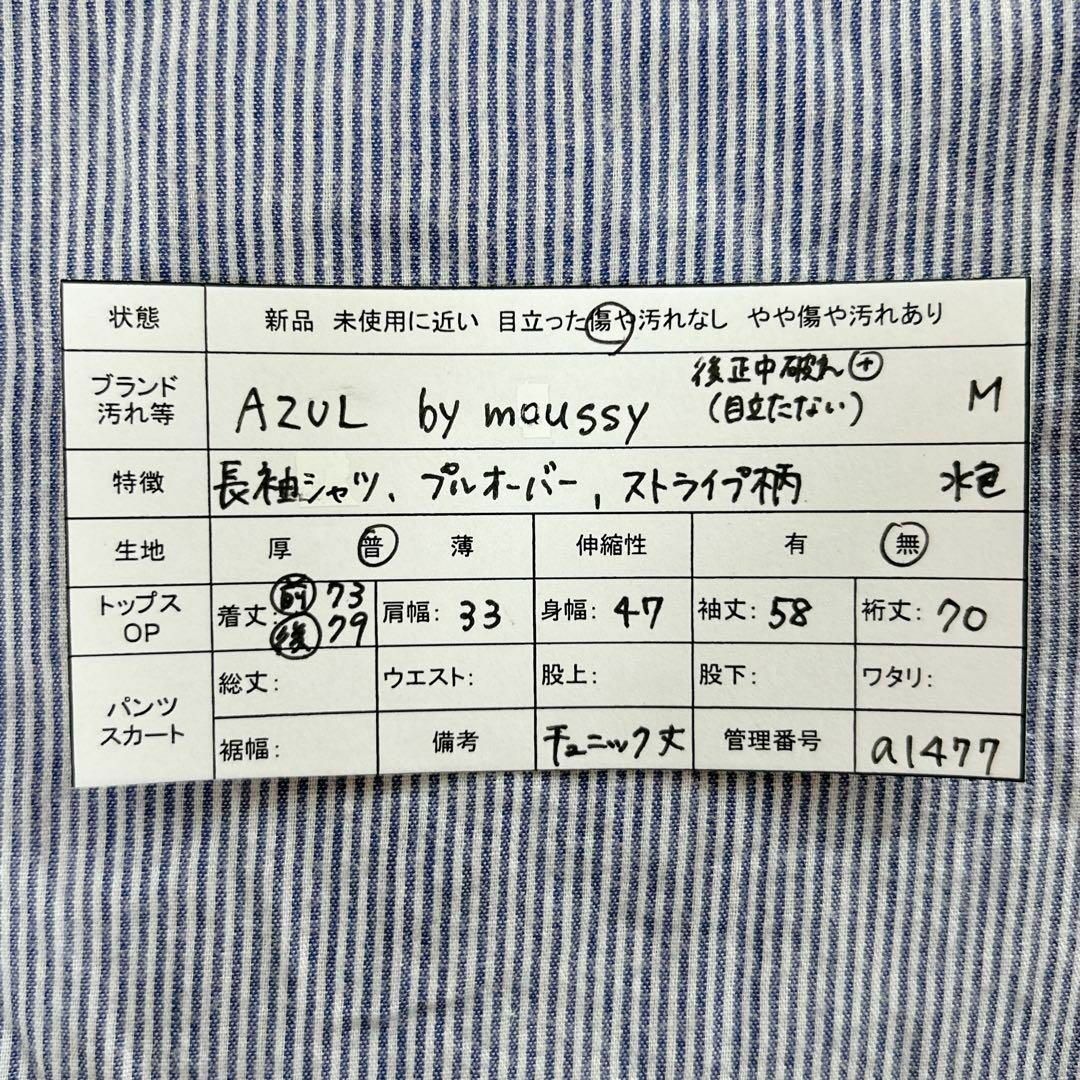 状態 新品 未使用に近い 目立った傷や汚れなし やや傷や汚れあり
ブランド 汚れ等 AZUL by moussy 後正中破れ(+) (目立たない) M
特徴 長袖シャツ、プルオーバー、ストライプ柄 水色
生地 厚 普 薄 伸縮性 有 無
トップス OP 着丈: 前 73 後 79 肩幅: 33 身幅: 47 袖丈: 58 裄丈: 70
パンツ スカート 総丈: ウエスト: 股上: 股下: ワタリ:
裾幅: 備考 チュニック丈 管理番号 a1477